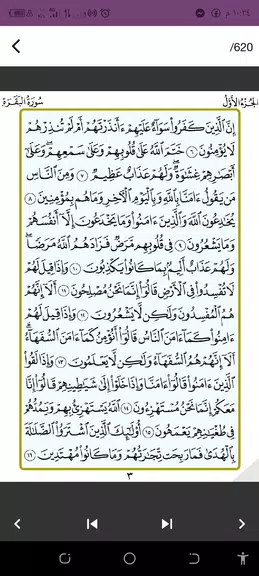 ١٠:٢٤
/620
سُورَةُ البَقَرَةِ
الجُزْءُ الأَوَّلُ
إِنَّ الَّذِينَ كَفَرُوا سَوَاءٌ عَلَيْهِمْ ءَأَنذَرْتَهُمْ أَمْ لَمْ تُنذِرْهُمْ
لَا يُؤْمِنُونَ ٦ خَتَمَ اللَّهُ عَلَىٰ قُلُوبِهِمْ وَعَلَىٰ سَمْعِهِمْ وَعَلَىٰ
أَبْصَـٰرِهِمْ غِشَـٰوَةٌ وَلَهُمْ عَذَابٌ عَظِيمٌ ٧ وَمِنَ النَّاسِ
مَن يَقُولُ ءَامَنَّا بِاللَّهِ وَبِالْيَوْمِ الْـَٔاخِرِ وَمَا هُم بِمُؤْمِنِينَ ٨
يُخَـٰدِعُونَ اللَّهَ وَالَّذِينَ ءَامَنُوا وَمَا يَخْدَعُونَ إِلَّا أَنفُسَهُمْ
وَمَا يَشْعُرُونَ ٩ فِي قُلُوبِهِم مَّرَضٌ فَزَادَهُمُ اللَّهُ مَرَضًا
وَلَهُمْ عَذَابٌ أَلِيمٌ بِمَا كَانُوا يَكْذِبُونَ ١٠ وَإِذَا قِيلَ لَهُمْ
لَا تُفْسِدُوا فِي الْأَرْضِ قَالُوا إِنَّمَا نَحْنُ مُصْلِحُونَ ١١ أَلَا إِنَّهُمْ
هُمُ الْمُفْسِدُونَ وَلَـٰكِن لَّا يَشْعُرُونَ ١٢ وَإِذَا قِيلَ لَهُمْ
ءَامِنُوا كَمَا ءَامَنَ النَّاسُ قَالُوا أَنُؤْمِنُ كَمَا ءَامَنَ السُّفَهَاءُ
أَلَا إِنَّهُمْ هُمُ السُّفَهَاءُ وَلَـٰكِن لَّا يَعْلَمُونَ ١٣ وَإِذَا لَقُوا
الَّذِينَ ءَامَنُوا قَالُوا ءَامَنَّا وَإِذَا خَلَوْا إِلَىٰ شَيَـٰطِينِهِمْ قَالُوا إِنَّا
مَعَكُمْ إِنَّمَا نَحْنُ مُسْتَهْزِءُونَ ١٤ اللَّهُ يَسْتَهْزِئُ بِهِمْ وَيَمُدُّهُمْ
فِي طُغْيَـٰنِهِمْ يَعْمَهُونَ ١٥ أُولَـٰئِكَ الَّذِينَ اشْتَرَوُا الضَّلَـٰلَةَ
بِالْهُدَىٰ فَمَا رَبِحَت تِّجَـٰرَتُهُمْ وَمَا كَانُوا مُهْتَدِينَ ١٦
٣